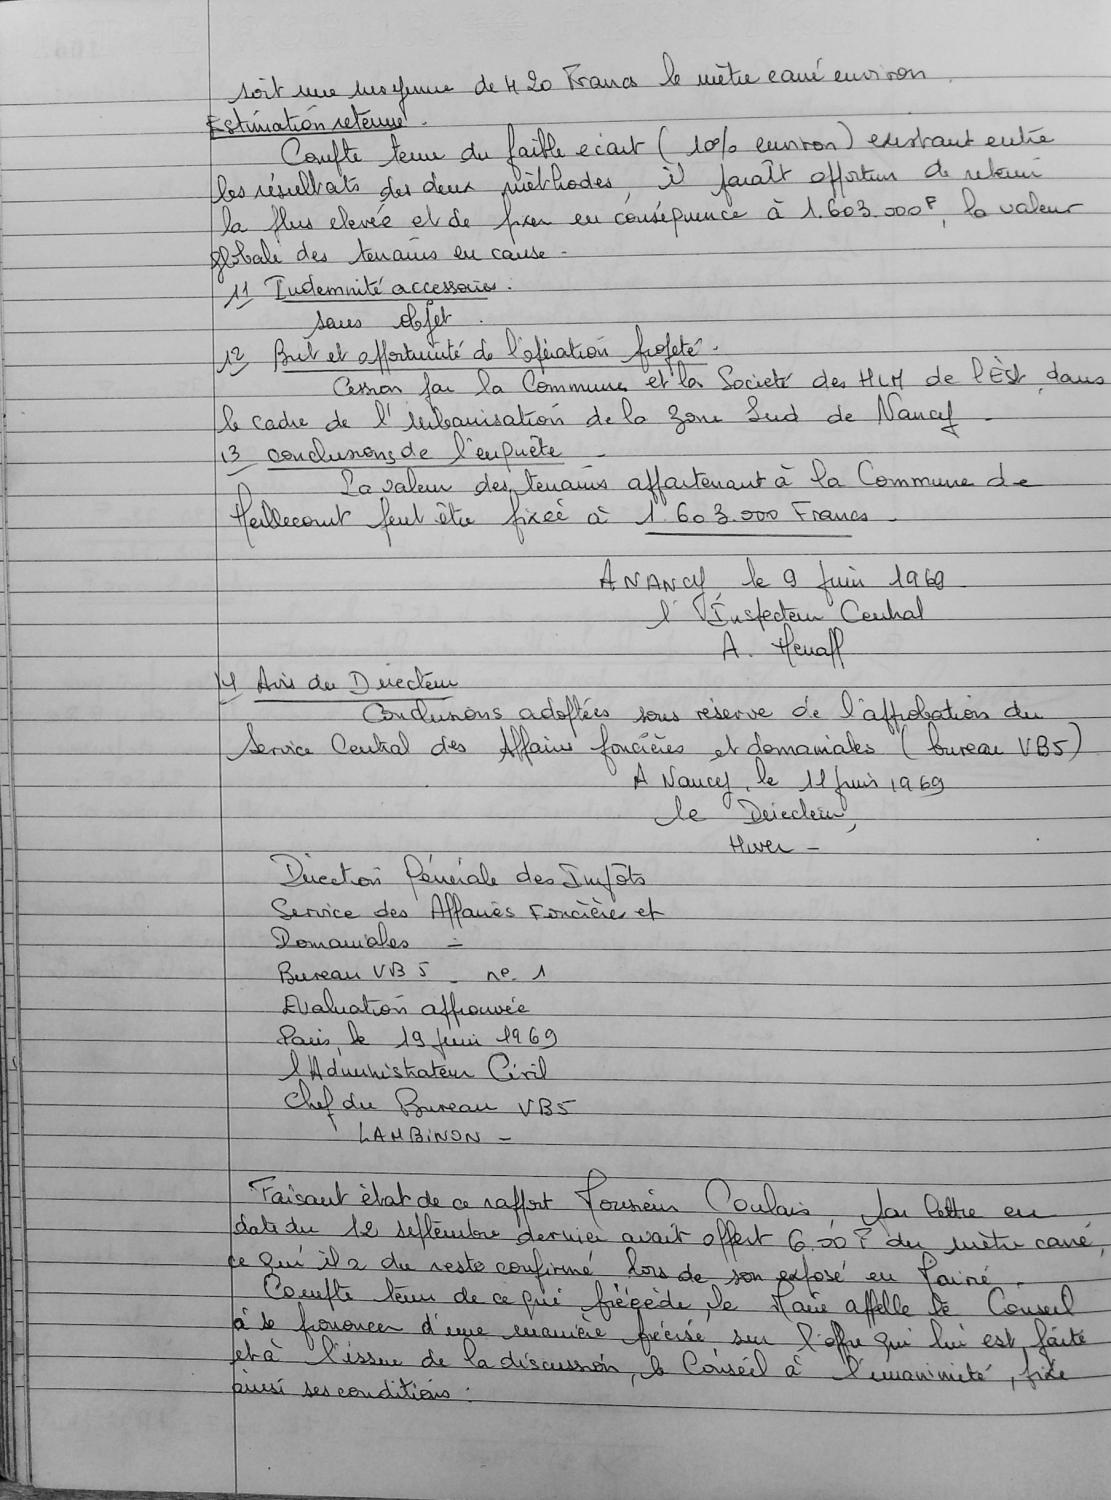 soit une moyenne de 4 20 Francs le mètre carré environ.
Estimation retenue.
Compte tenu du faible écart (10% environ) existant entre
les résultats des deux méthodes, il paraît opportun de retenir
la plus elevée et de fixer en conséquence à 1.603.000F, la valeur
globale des terrains en cause -
11 Indemnité accessoires.
sans objet.
12 But et opportunité de l'opération projeté.
Cession par la Commune et la Societé des HLM de l'Est, dans
le cadre de l'urbanisation de la zone Sud de Nancy -
13 conclusions de l'enquête -
La valeur des terrains appartenant à la Commune de
Heillecourt peut être fixée à 1.603.000 Francs -
A NANCY, le 9 Juin 1969
l'Inspecteur Central
A. Henaff
14 Avis du Directeur
Conclusions adoptées sous réserve de l'approbation du
Service Central des Affaires foncières et domaniales (bureau VB5)
A Nancy, le 11 Juin 1969
le Directeur,
Direction Générale des Impôts
Service des Affaires Foncières et
Domaniales -
Bureau VB5 - n° 1
Evaluation approuvée
Paris, le 19 Juin 1969
l'Administrateur Civil
Chef du Bureau VB5
LAMBINON -
Faisant état de ce rapport Monsieur Coulais, par lettre en
date du 12 septembre dernier avait offert 6,00F du mètre carré,
ce qu'il a du reste confirmé lors de son exposé en Mairie.
Compte tenu de ce qui précède, le Maire appelle le Conseil
à se prononcer d'une manière précise, sur l'offre qui lui est faite
et à l'issue de la discussion, le Conseil à l'unanimité, fixe
ainsi ses conditions :